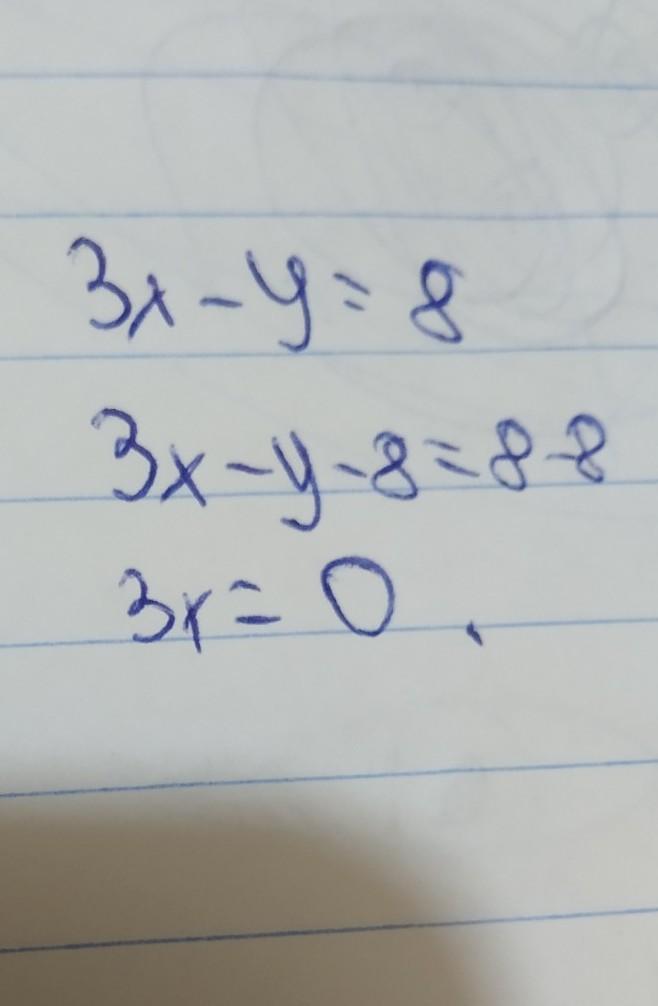 3x - y = 8
3x - y - 8 = 8 - 8
3x = 0 .